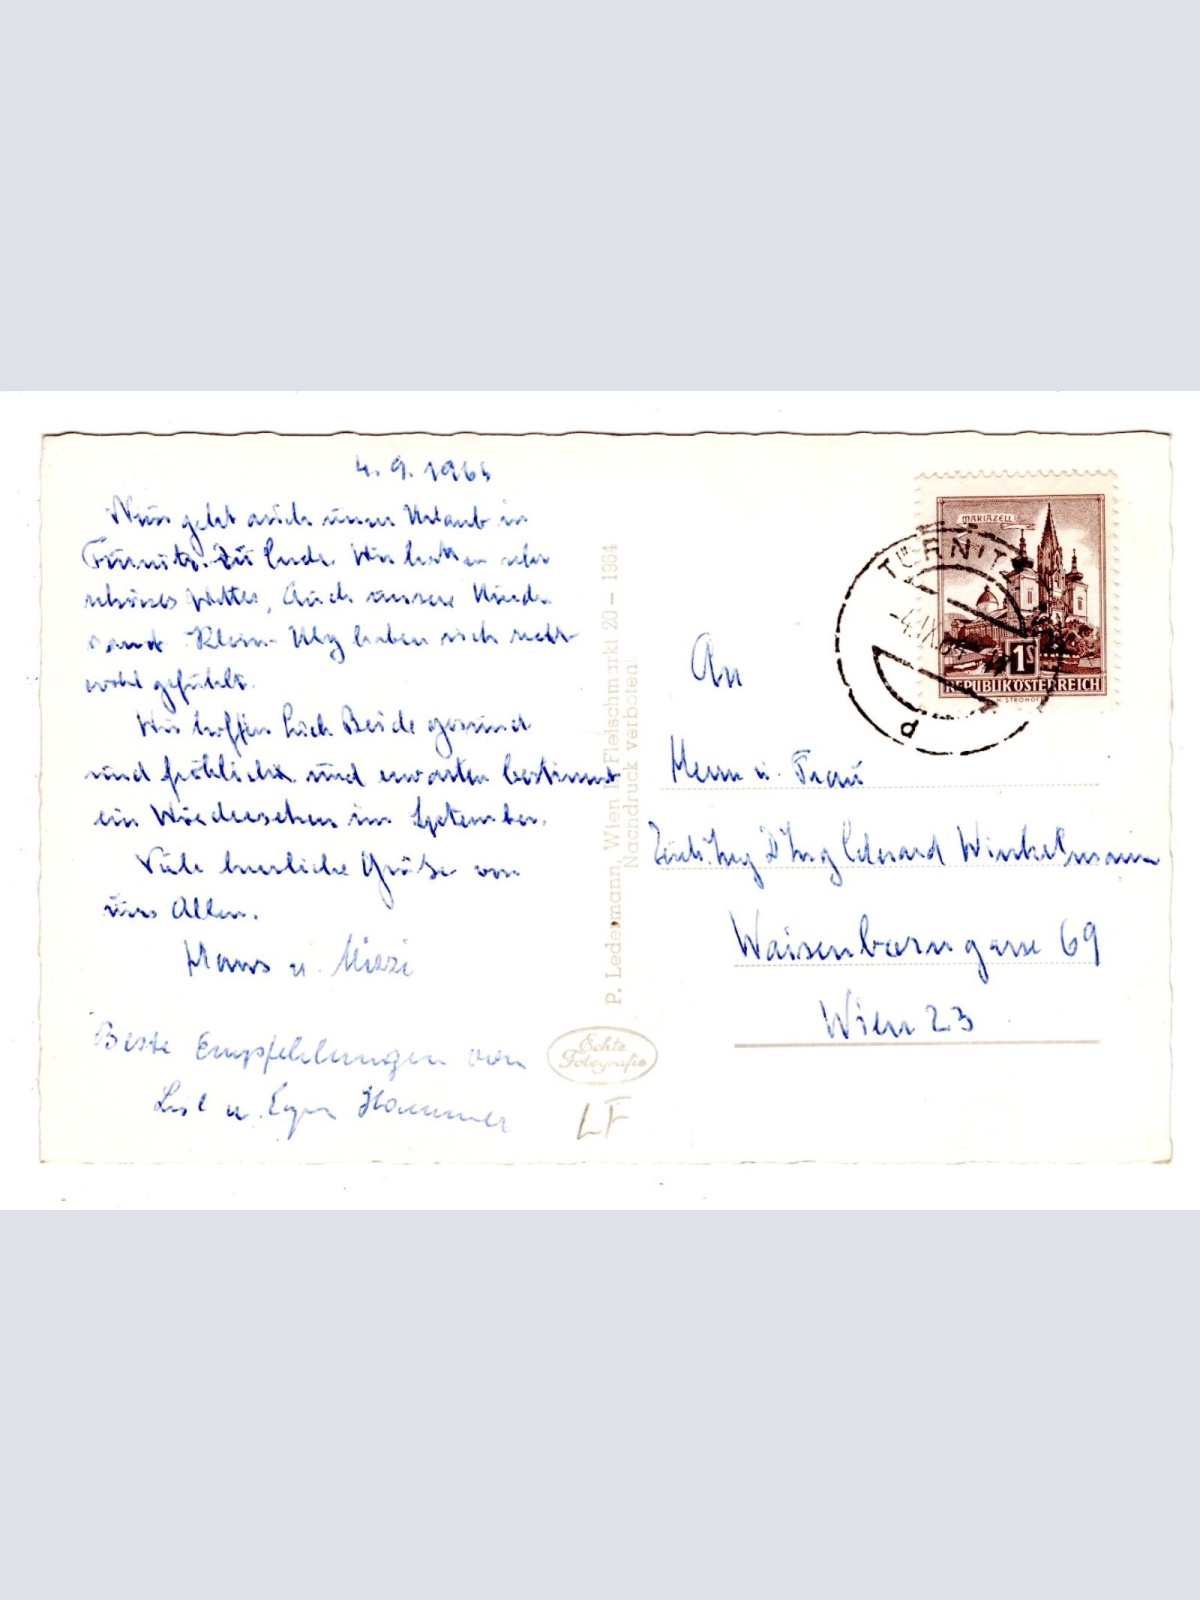 4.9.1965
Nun geht auch unser Urlaub in
Türnitz zu Ende. Wir hatten sehr
schönes Wetter, Auch unsere Kinder
samt Klein- haben sich recht
wohl gefühlt.
Wir hoffen Euch Beide gesund
und fröhlich und erwarten bestimmt
ein Wiedersehen im September.
Viele herzliche Grüße von
uns Allen.
Hans u. Mizzi
Beste Empfehlungen von
Lisl u. Hammer
P. Ledermann, Wien I, Fleischmarkt 20 – 1964
Nachdruck verboten!
Echte
Fotografie
LF
MARIAZELL
1S
REPUBLIK ÖSTERREICH
H. STROHOFER
TÜRNITZ
-4.IX.
d
An
Herrn u. Frau
Eduard Winkelmann
Waisenhorngasse 69
Wien 23